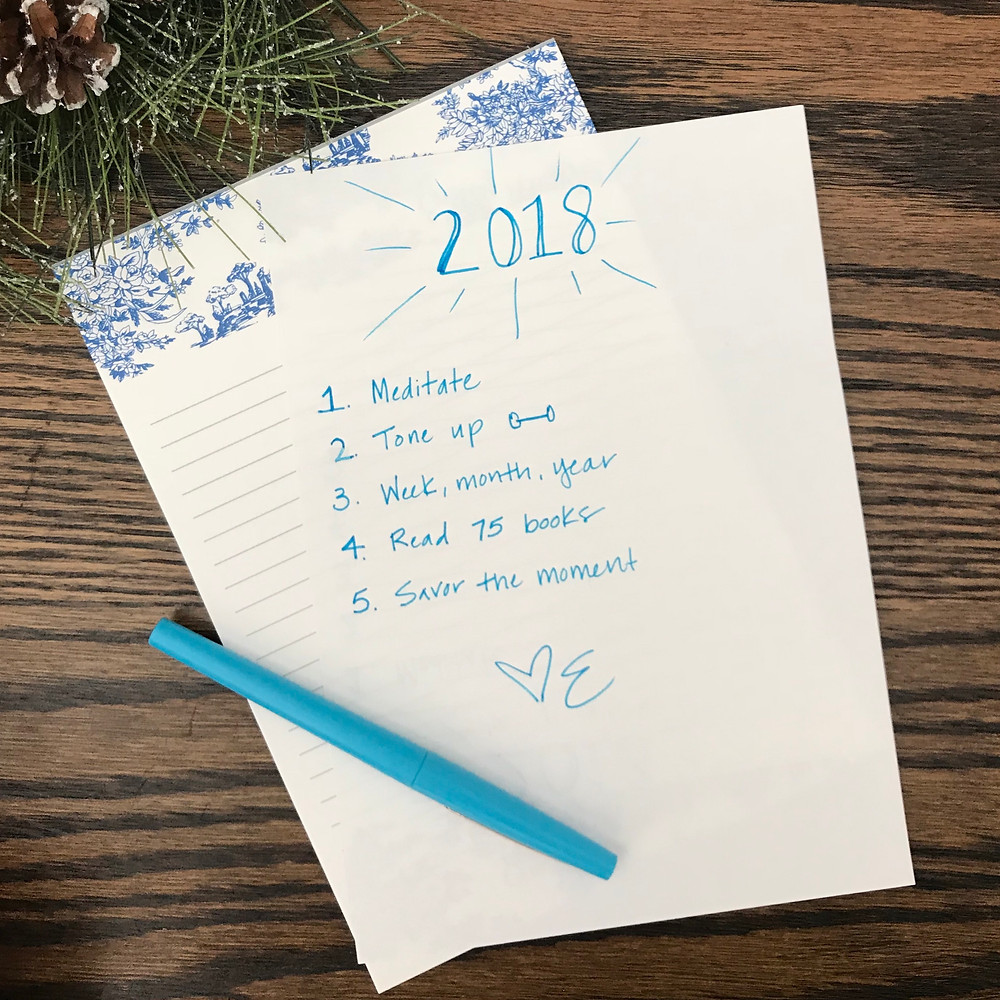 2018
1. Meditate
2. Tone up
3. Week, month, year
4. Read 75 books
5. Savor the moment
♡ E